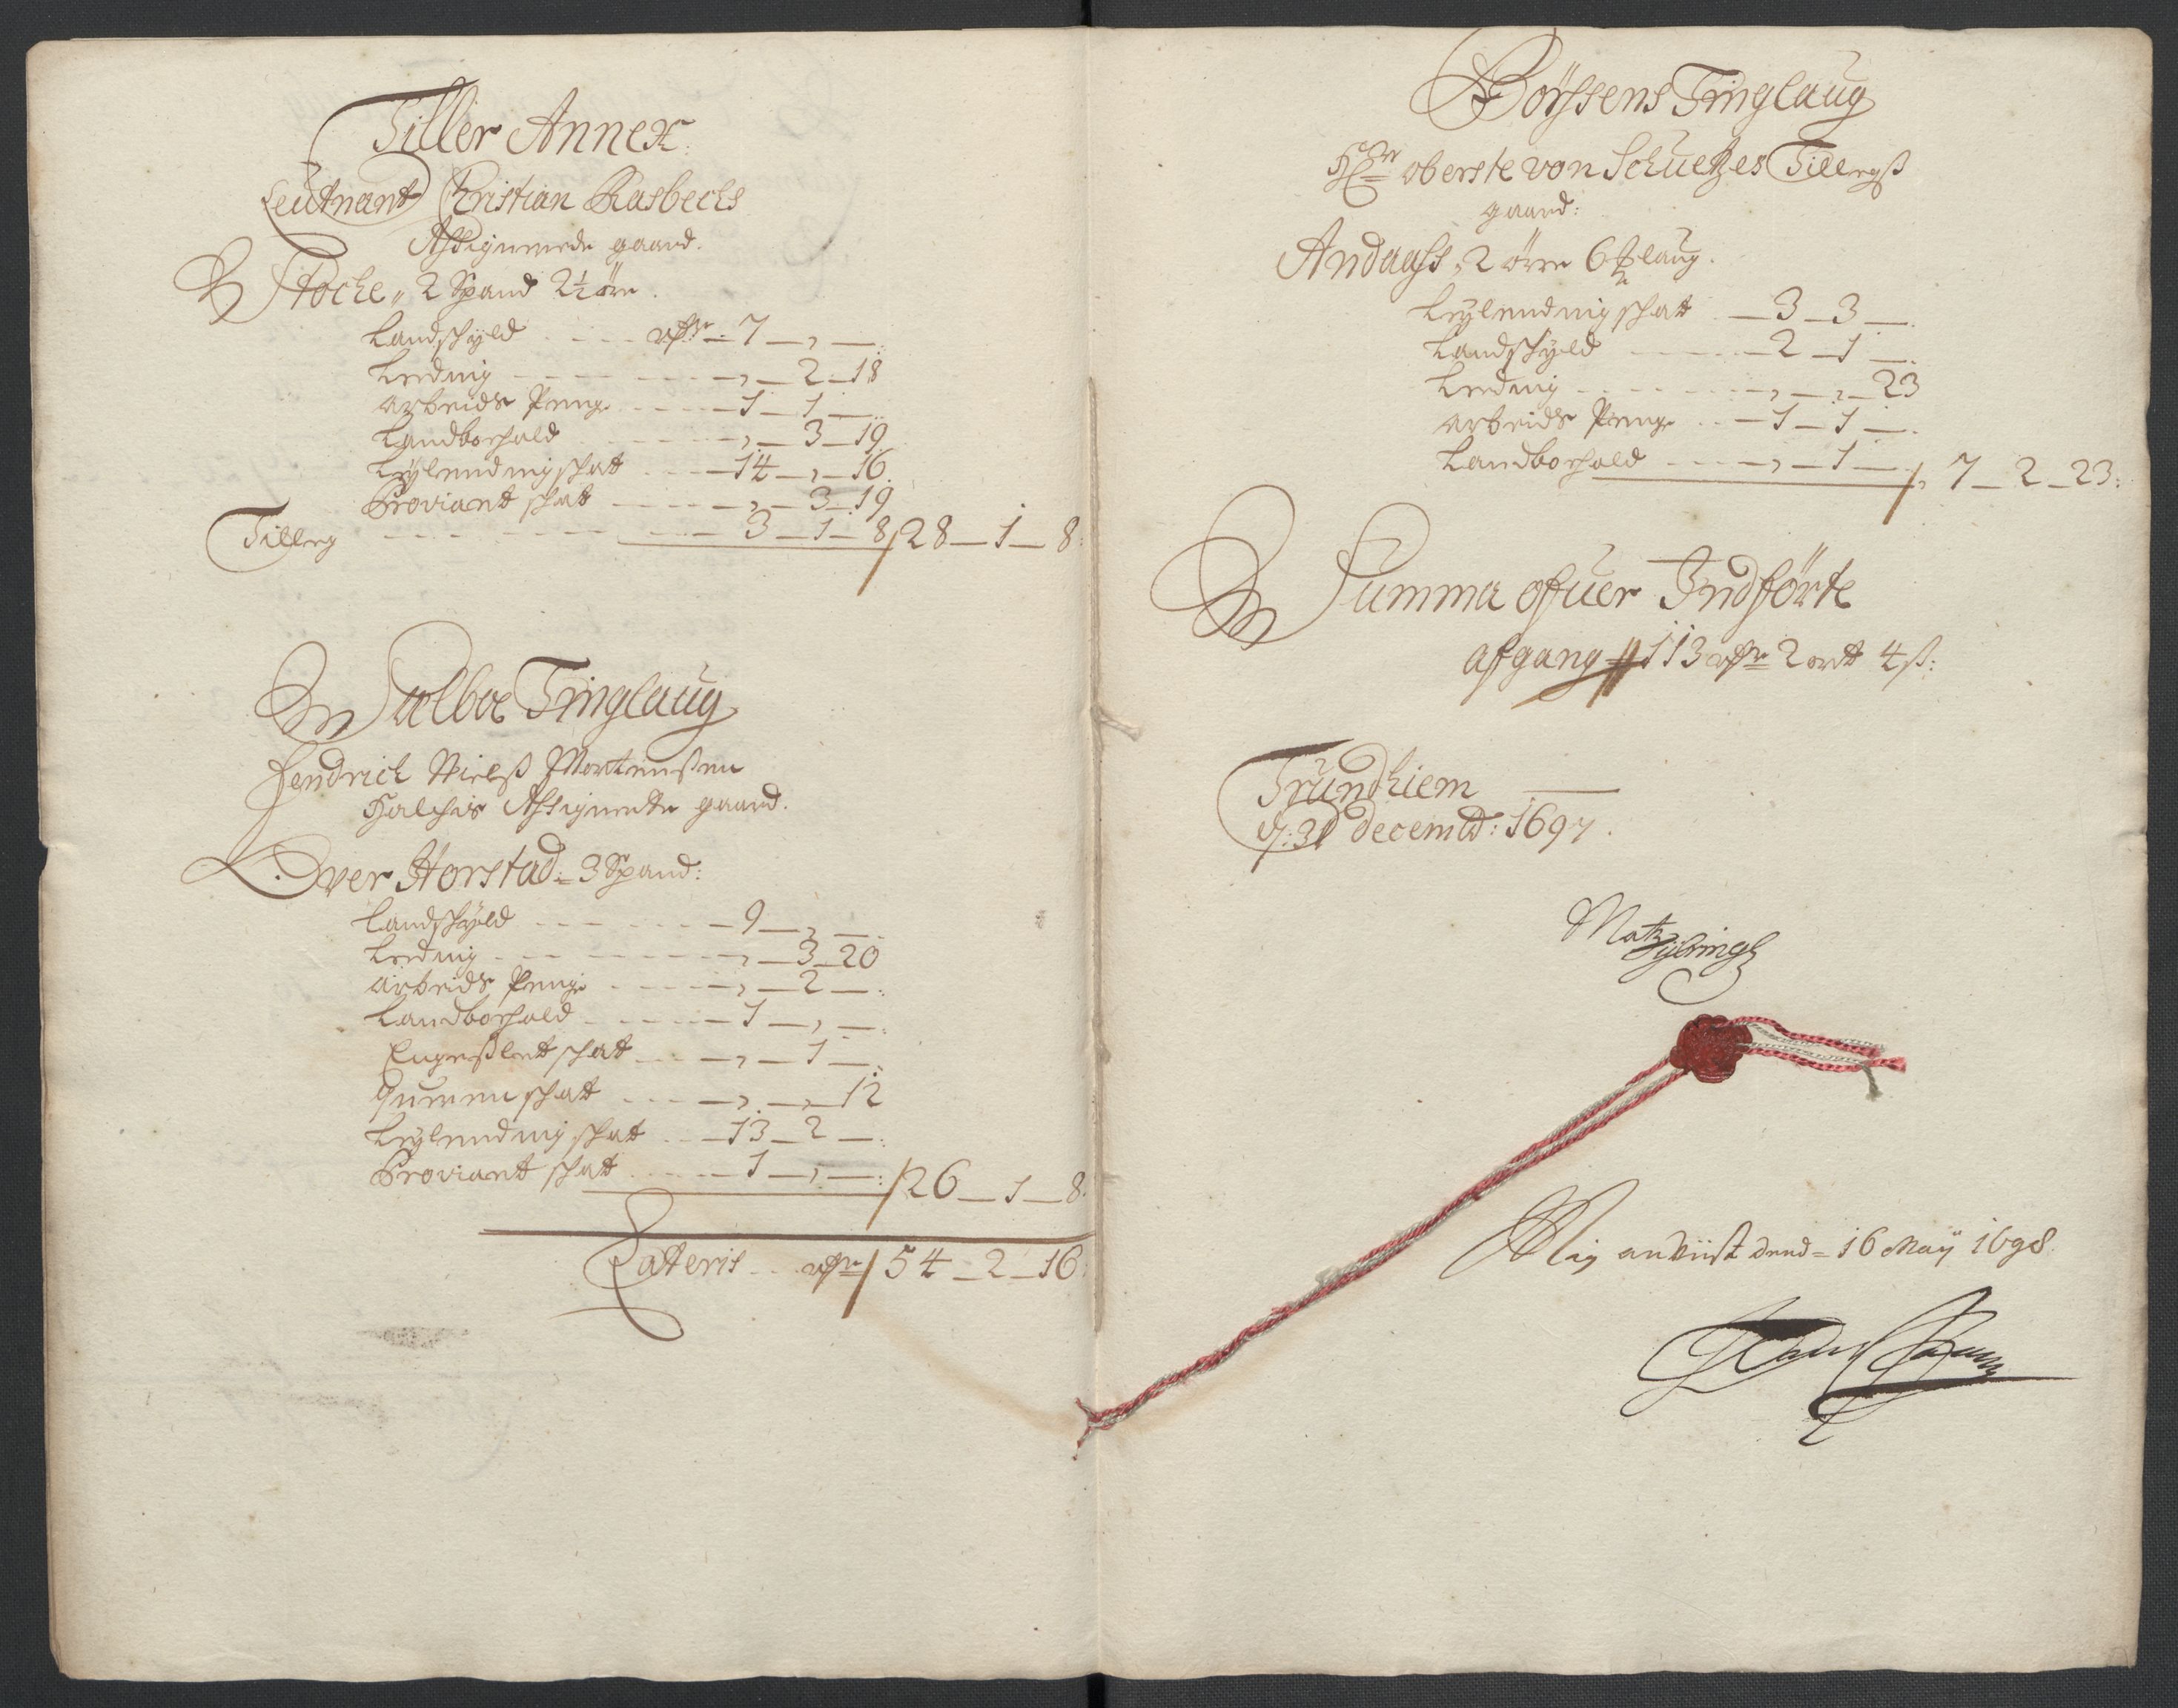 Tiller Annex:
Leutnant Christian Rasbechs
Assignerede gaard.
Stoche, 2 Spand 2½ øre.
Landschyld - - - - rdr. 7 — , — .
Leding - - - , — 2 — 18
Arbeids Penge - - - 1 — 1 — .
Landbochold - - - , — 3 — 19.
Leylendingschat - - - 14 — , — 16.
Proviant schat - - - , — 3 — 19
Tilleg - - - 3 — 1 — 8 / 28 — 1 — 8:
Sælboe Tinglaug
Fendrich Niels Mortensen
Halchis Assignerede gaard.
Over Horstad = 3 Spand:
Landschyld - - - 9 — , — .
Leding - - - , — 3 — 20
Arbeids Penge - - - , — 2 — :
Landbochold - - - 1 — , — :
Engeslet schat - - - , — 1 — :
Quernschat - - - , — , — 12
Leylendingschat - - - 13 — 2 — :
Proviant schat - - - 1 — , — : / 26 — 1 — 8.
Lateris - - rdr / 54 — 2 — 16:
Børssens Tinglaug
Hr: oberste von Schultzes Tillegs
gaard:
Andaass, 2 øre 6 ½ laug.
Leylendingschat — 3 — 3 — .
Landschyld - - - 2 — 1 — .
Leding - - - , — , — 23
Arbeids Penge - - - 1 — 1 — .
Landbochold - - - , — 1 — . / 7 — 2 — 23:
Summa ofuer Indførte
afgang // 113 rdr 2 ort 4 ß:
Trundhiem
d: 31 decembr: 1697.
Matz
Mig anviist dend = 16 Maÿ 1698